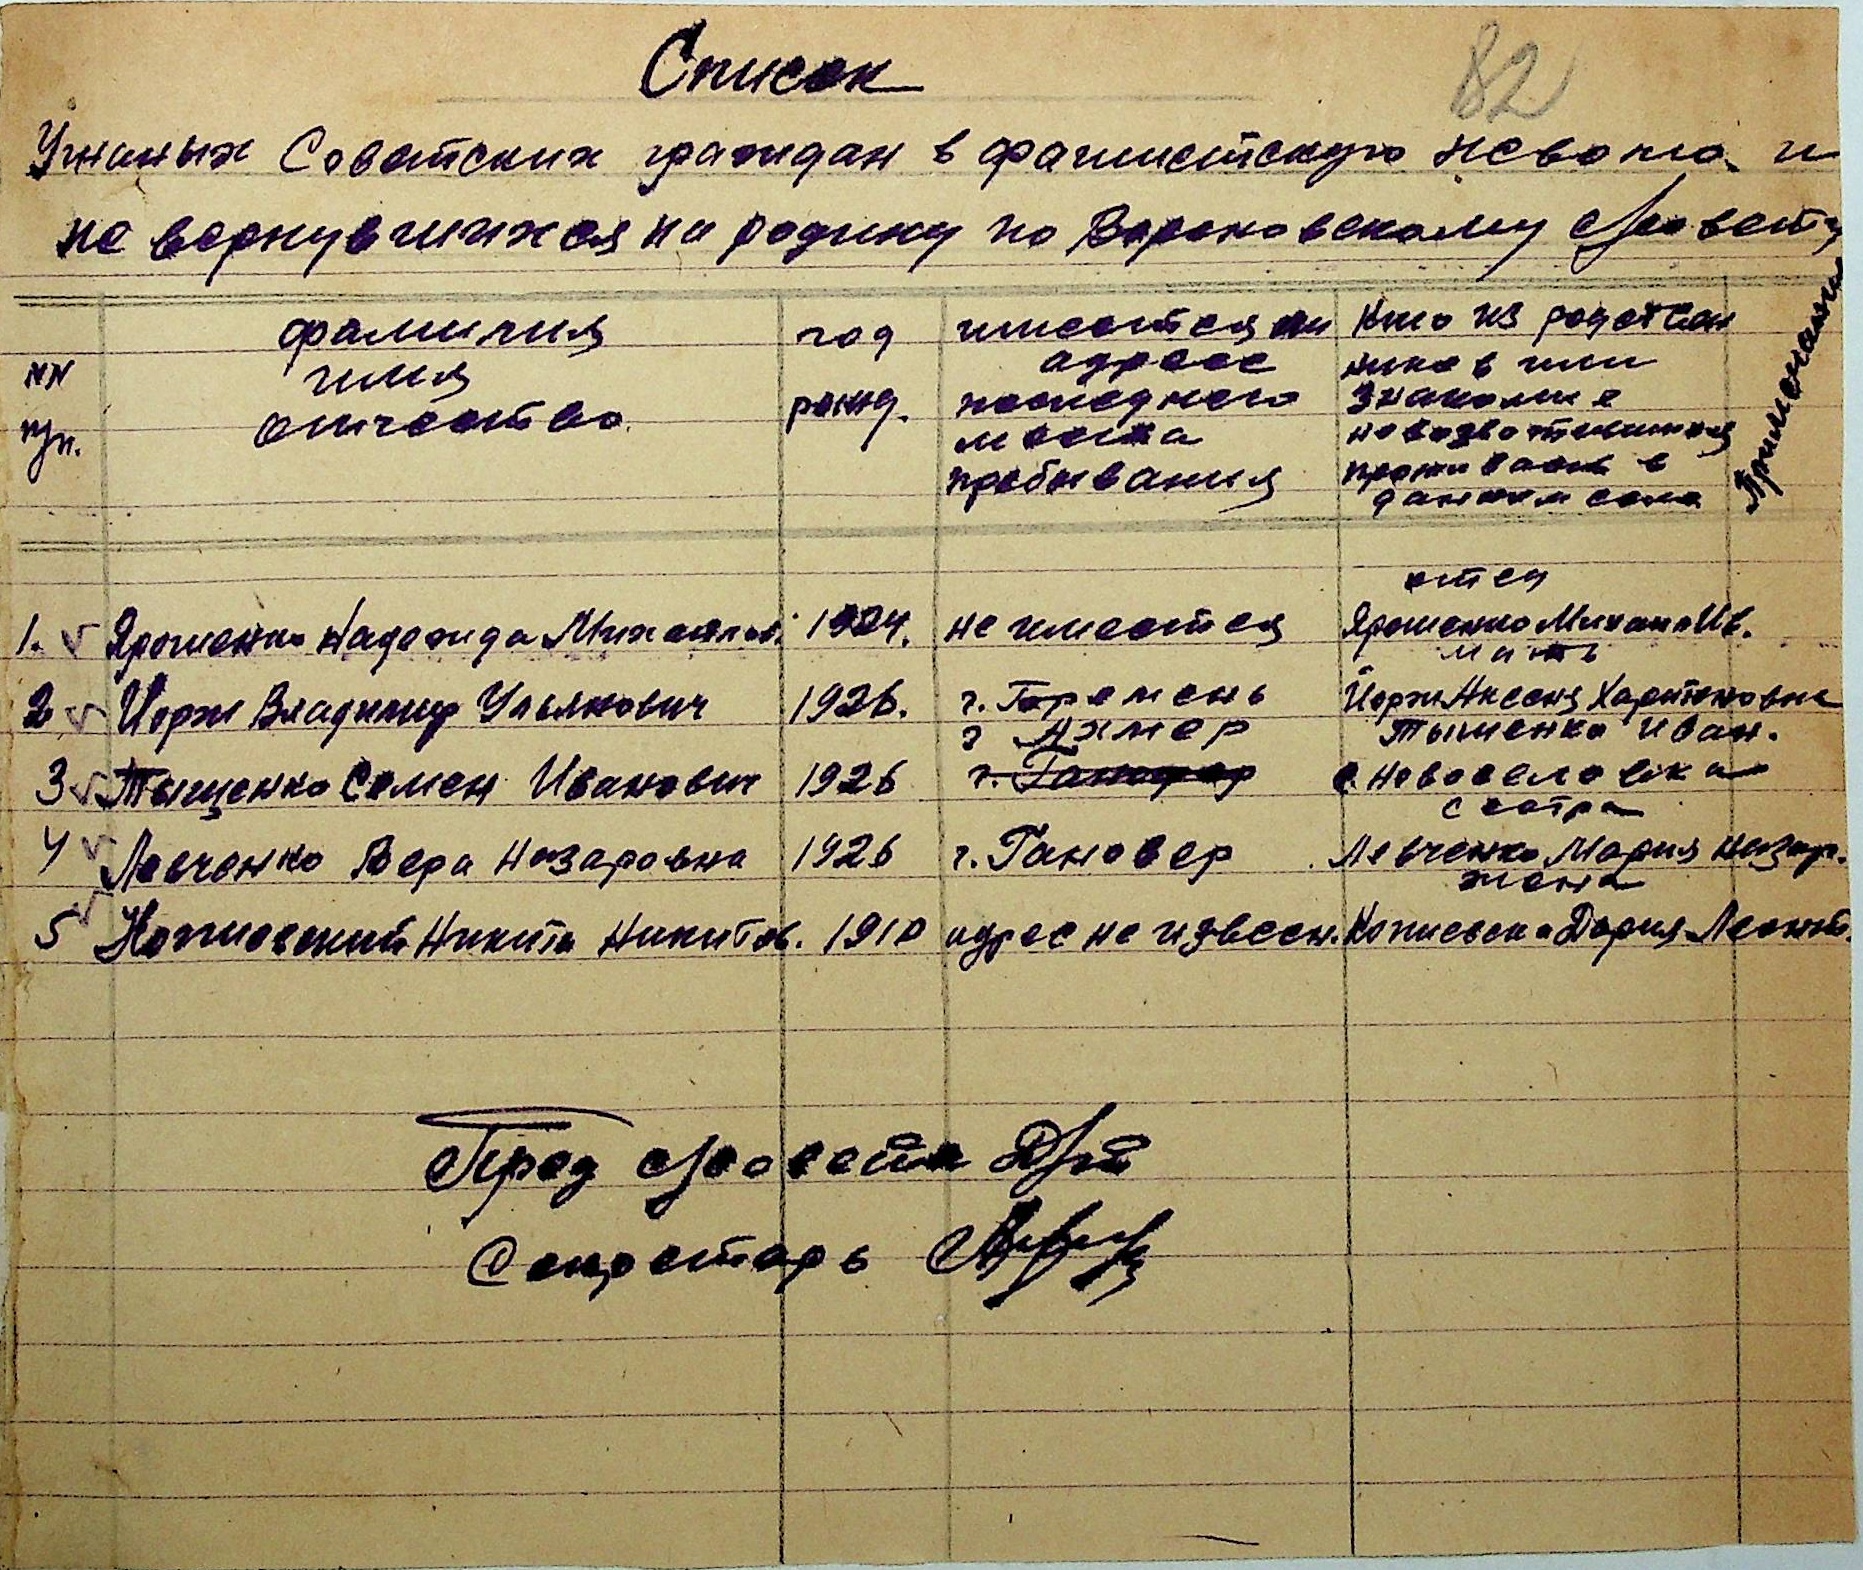 82
Список
Угнаных Советских граждан в фашистскую неволю и
не вернувшихся на родину по Вороновскому с/совету
NN
п/п.
фамилия
имя
отчество.
год
рожд.
имеется ли
адрес
последнего
места
пребывания
Кто из родствен
ников или
знакомые
невозвотившихся
проживает в
данном селе
Примечание
отец
1. Ярошенко Надежда Михайлов. 1924. не имеется Ярошенко Михаил Ив.
мать
2 Йорж Владимир Ульянович 1926. г. Бремень Йорж Аксеня Харитоновна
г Ахмер Тыщенко Иван.
3 Тыщенко Семен Иванович 1926 г. Гановер с. Новоселовка
сестра
4 Левченко Вера Назаровна 1926 г. Гановер Левченко Мария Назар.
жена
5 Копиевский Никита Никитов. 1910 адрес не извесен. Копиевска Дария Леонт.
Пред с/совета
Секретарь